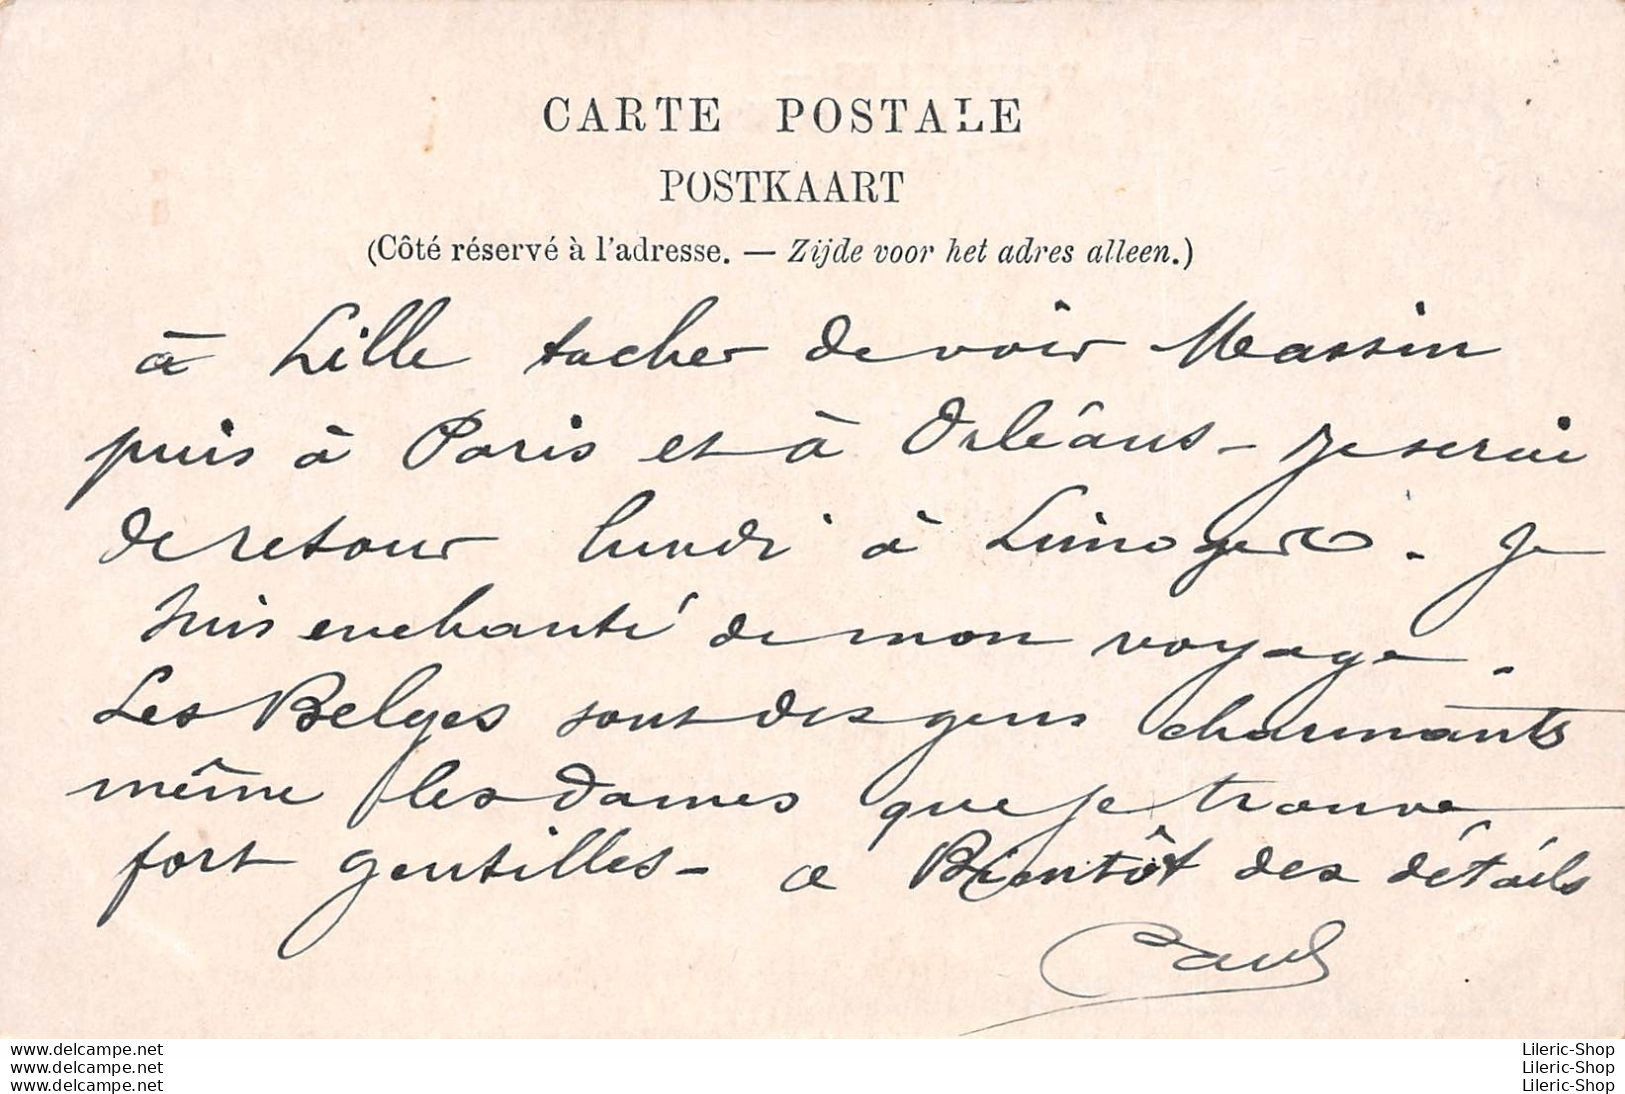 CARTE POSTALE
POSTKAART
(Côté réservé à l'adresse. — Zijde voor het adres alleen.)
à Lille tacher de voir Massin
puis à Paris et à Orléans - Je serai
de retour lundi à Limoges. Je
suis enchanté de mon voyage.
Les Belges sont des gens charmants
même les dames que je trouve
fort gentilles - a Bientôt des détails
Paul
www.delcampe.net
www.delcampe.net
www.delcampe.net
Lileric-Shop
Lileric-Shop
Lileric-Shop